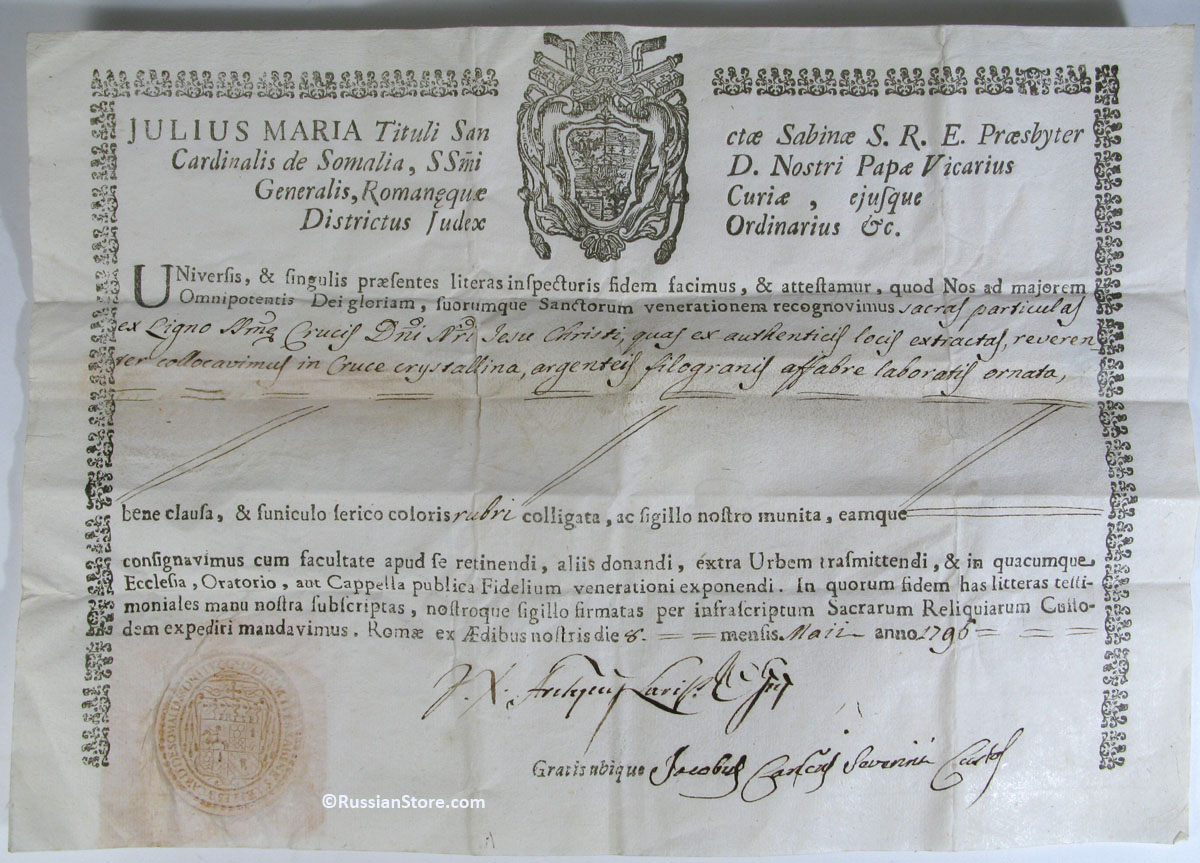 JULIUS MARIA Tituli Sanctæ Sabinæ S. R. E. Præsbyter
Cardinalis de Somalia, SSm̃i D. Nostri Papæ Vicarius
Generalis, Romanęquæ Curiæ, ejuſque
Districtus Judex Ordinarius &c.
UNiversis, & ſingulis præſentes literas inſpecturis fidem facimus, & atteſtamur, quod Nos ad majorem
Omnipotentis Dei gloriam, ſuorumque Sanctorum venerationem recognovimus sacras particulas
ex Ligno Sm̃æ Crucis Dñi Ñri Jesu Christi, quas ex authenticis locis extractas, reveren-
ter collocavimus in Cruce crystallina, argenteis filogranis affabre laboratis ornata,
bene clauſa, & funiculo ſerico coloris rubri colligata, ac ſigillo noſtro munita, eamque
consignavimus cum facultate apud ſe retinendi, aliis donandi, extra Urbem trasmittendi, & in quacumque
Ecclesia, Oratorio, aut Cappella publica Fidelium venerationi exponendi. In quorum fidem has litteras teſti-
moniales manu noſtra ſubſcriptas, noſtroque ſigillo firmatas per infraſcriptum Sacrarum Reliquiarum Cuſto-
dem expediri mandavimus. Romæ ex Ædibus noſtris die 8. mensis Maii anno 1796
Gratis ubique Jacobus Severini Custos
©RussianStore.com